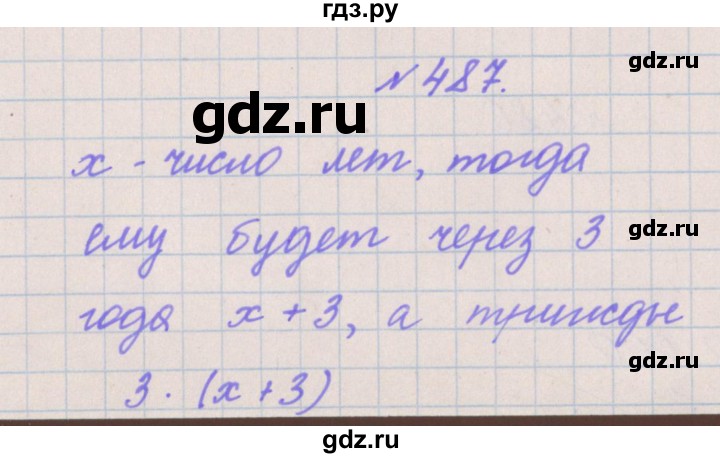 гдз.ру
№ 487.
gdz.ru
gdz.ru
x - число лет, тогда
ему будет через 3
gdz.ru
года x + 3, а трижды
gdz.ru
3 · (x + 3)
gdz.ru